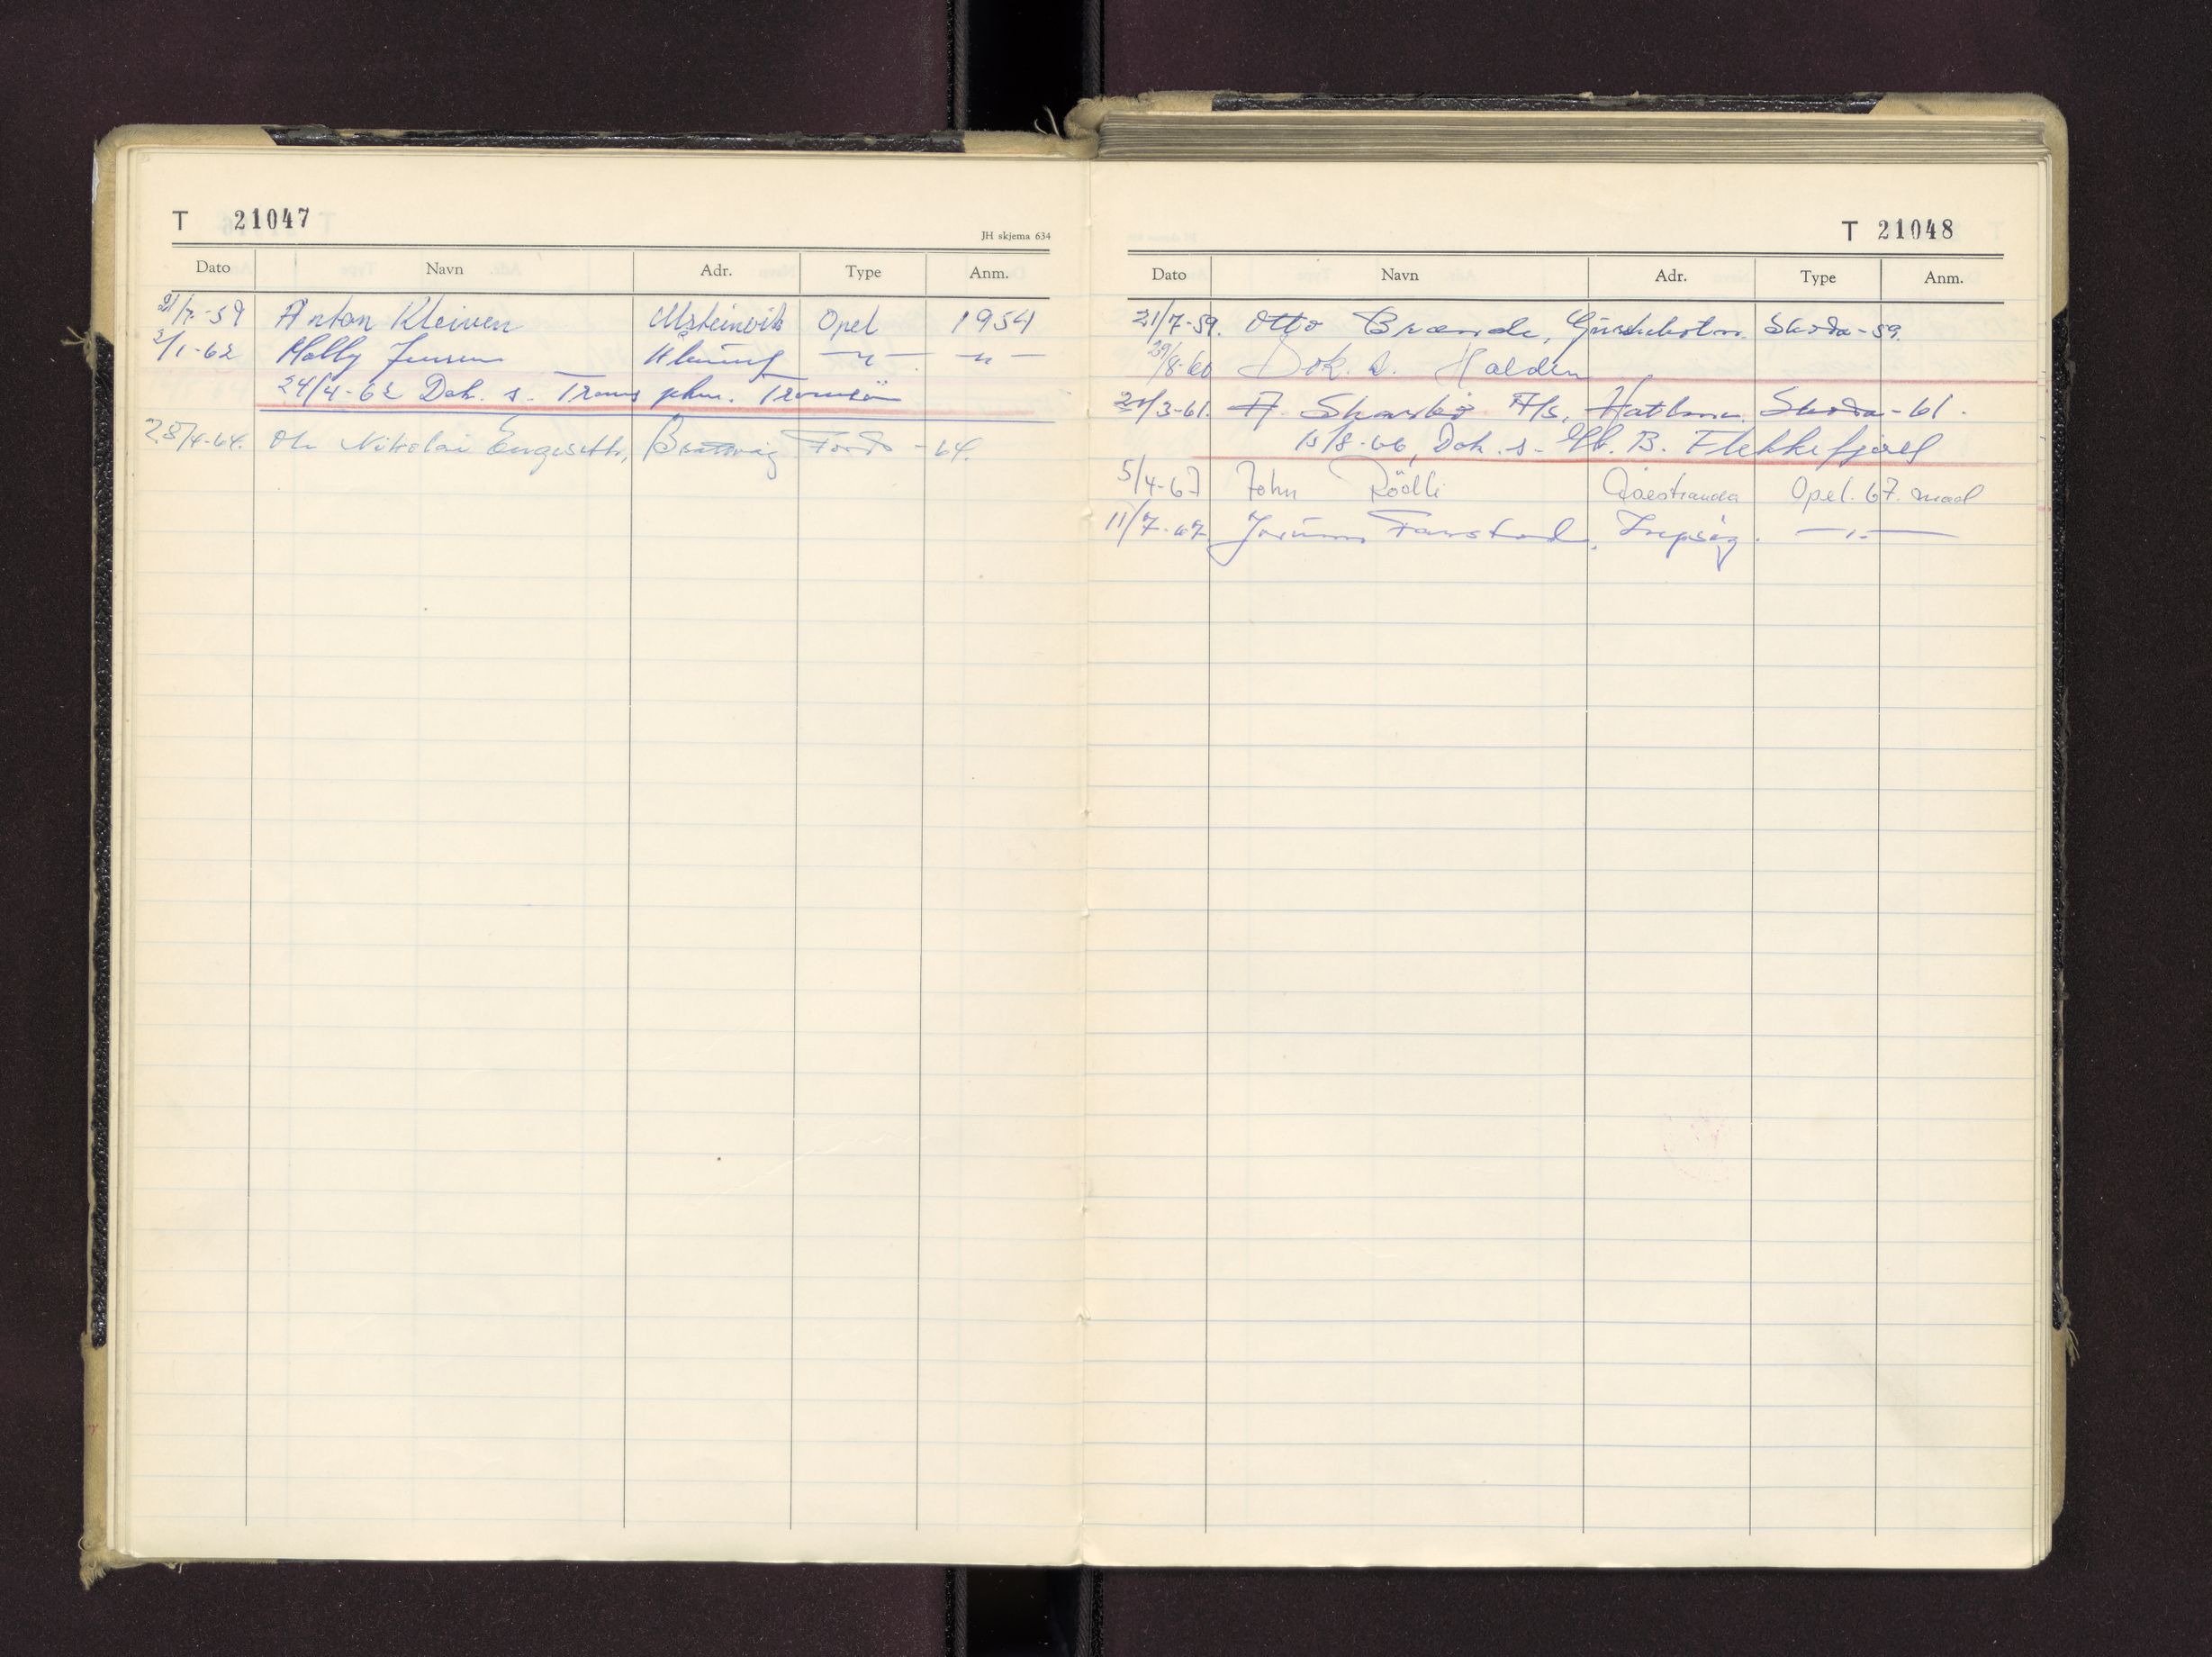 T 21047
JH skjema 634
Dato Navn Adr. Type Anm.
21/7-59 Anton Kleiven Ulsteinvik Opel 1954
2/1-62 Molly Jensen Ålesund — " — — " —
24/4-62 Dok. s. Troms pkm. Tromsö
28/4-64. Ole Nikolai Engeseth, Brattvåg Ford - 64.
T 21048
Dato Navn Adr. Type Anm.
21/7-59. Otto Brænde, Gursken Skoda - 59.
29/8-60 Dok. s. Halden
21/3-61. A. Skarbö A/s, Hatlane. Skoda - 61.
15/8-66, Dok. s. B. Flekkefjord
5/4-67 John Rödli Opel. 67. mod
11/7-67 Farstad — " —